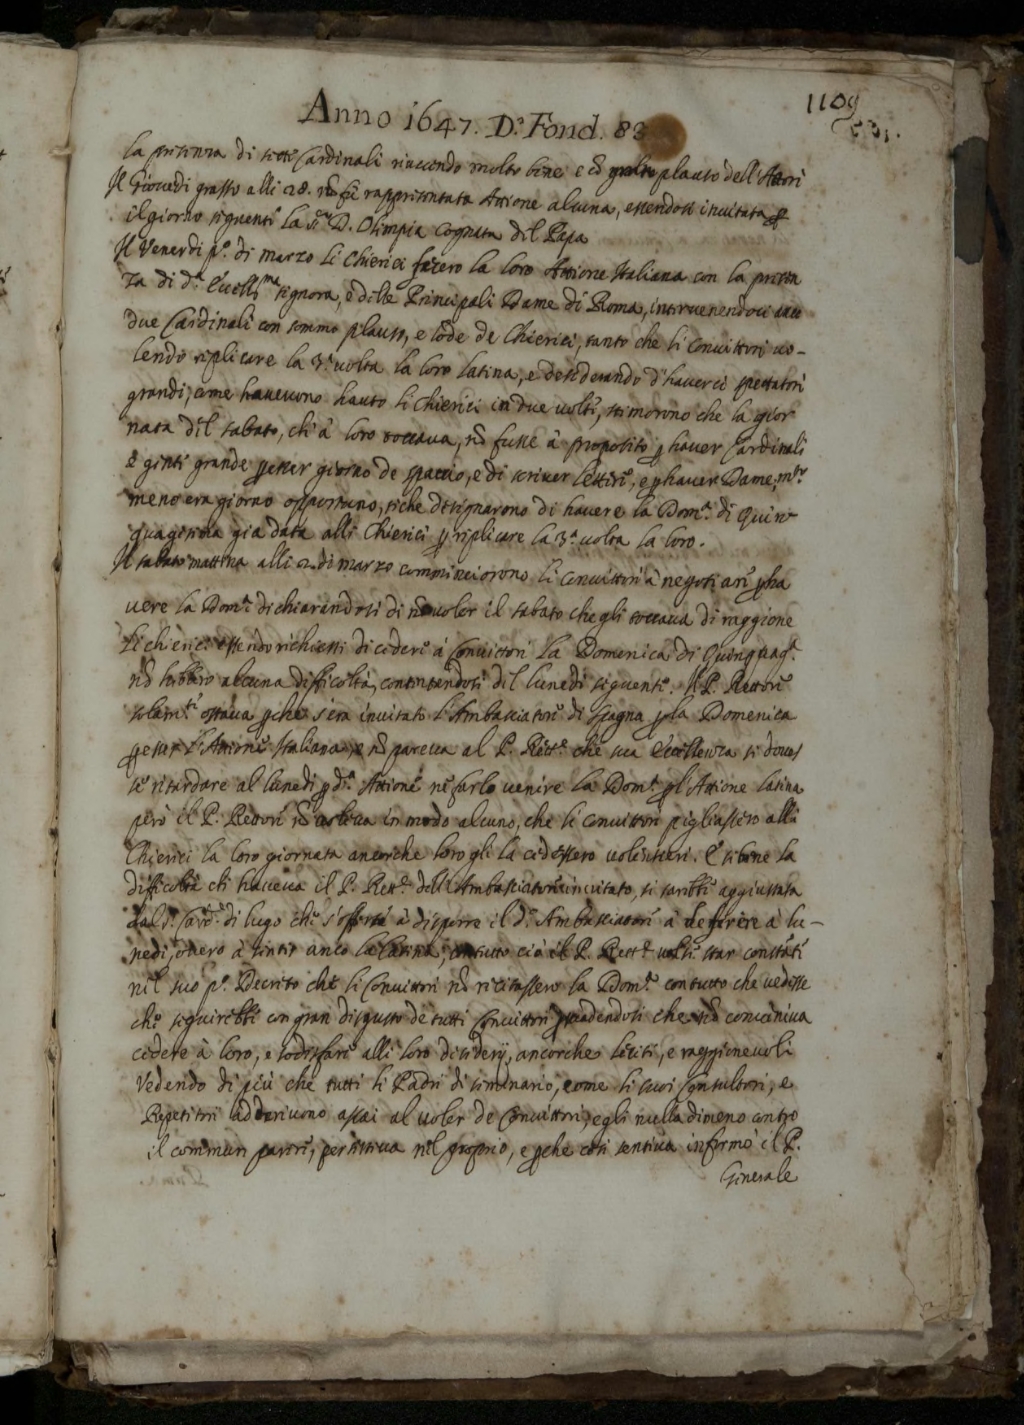 1109
531.
Anno 1647. D.º Fond. 83
la presenza di sette Cardinali riuscendo molto bene e cō molto plauso dell'Attori
Il Giovedi grasso alli 28. nō fù rappresentata Attione alcuna, essendosi invitata p
il giorno seguente la D. Olimpia Cognata del Papa
Il Venerdi p.º di marzo li Chierici fecero la loro Attione Italiana con la presen
za di d.ª Eccell.ma signora, e delle Principali Dame di Roma, intervenendovi
due Cardinali con sommo plauso, e lode de Chierici, tanto che li Convittori vo-
lendo replicare la 3.ª volta la loro latina, e desiderando d'haverci spettatori
grandi, come havevono hauto li Chierici in due volte, stimorono che la gior
nata del sabato, ch'à loro toccava, nō fusse à proposito p haver Cardinali
e gente grande p esser giorno de spaccio, e di scriver lettere, e p haver Dame,
meno era giorno opportuno, siche designarono di havere la Dom.ª di Quin-
quagesima gia data alli Chierici p replicare la 3.ª volta la loro.
Il sabato mattina alli 2. di marzo comminciorono li Convittori à negotiare p ha
vere la Dom.ª dichiarandosi di nō voler il sabato che gli toccava di raggione
Li chierici essendo richiesti di cedere à Convittori la Domenica di Quinquag.ª
nō hebbero alcuna difficoltà, contentandosi del lunedi seguente. Il P. Rettore
solam.te ostava pche s'era invitato l'Ambasciatore di Spagna p la Domenica
p esser l'Attione Italiana, e nō pareva al P. Rett.e che sua Eccellenza si doves
se ritardare al lunedi p d.ª Attione ne farlo venire la Dom.ª p l'Attione latina
però il P. Rettore nō voleva in modo alcuno, che li Convittori pigliassero alli
Chierici la loro giornata ancorche loro gli la cedessero volentieri. E sibene la
difficoltà che haveva il P. Rett.e dell'Ambasciatore invitato, si sarebbe aggiustata
dal S. Card.e di Lugo che s'offerse à disporre il d.º Ambasciatore à deferire à lu-
nedi, overo à sentir anco la latina, contutto ciò il P. Rett.e volse star constāte
nel suo p.º Decreto che li Convittori nō recitassero la Dom.ª contutto che vedesse
che seguirebbe con gran disgusto de tutti Convittori p suadendosi che nō conveniva
cedere à loro, e sodisfare alli loro desiderij, ancorche leciti, e raggionevoli
Vedendo di più che tutti li Padri di seminario, come li suoi Consultori, e
Repetitori adderivono assai al voler de Convittori, egli nulla dimeno contro
il commun parere, persisteva nel proprio, e pche cosi sentiva informò il P.
Generale